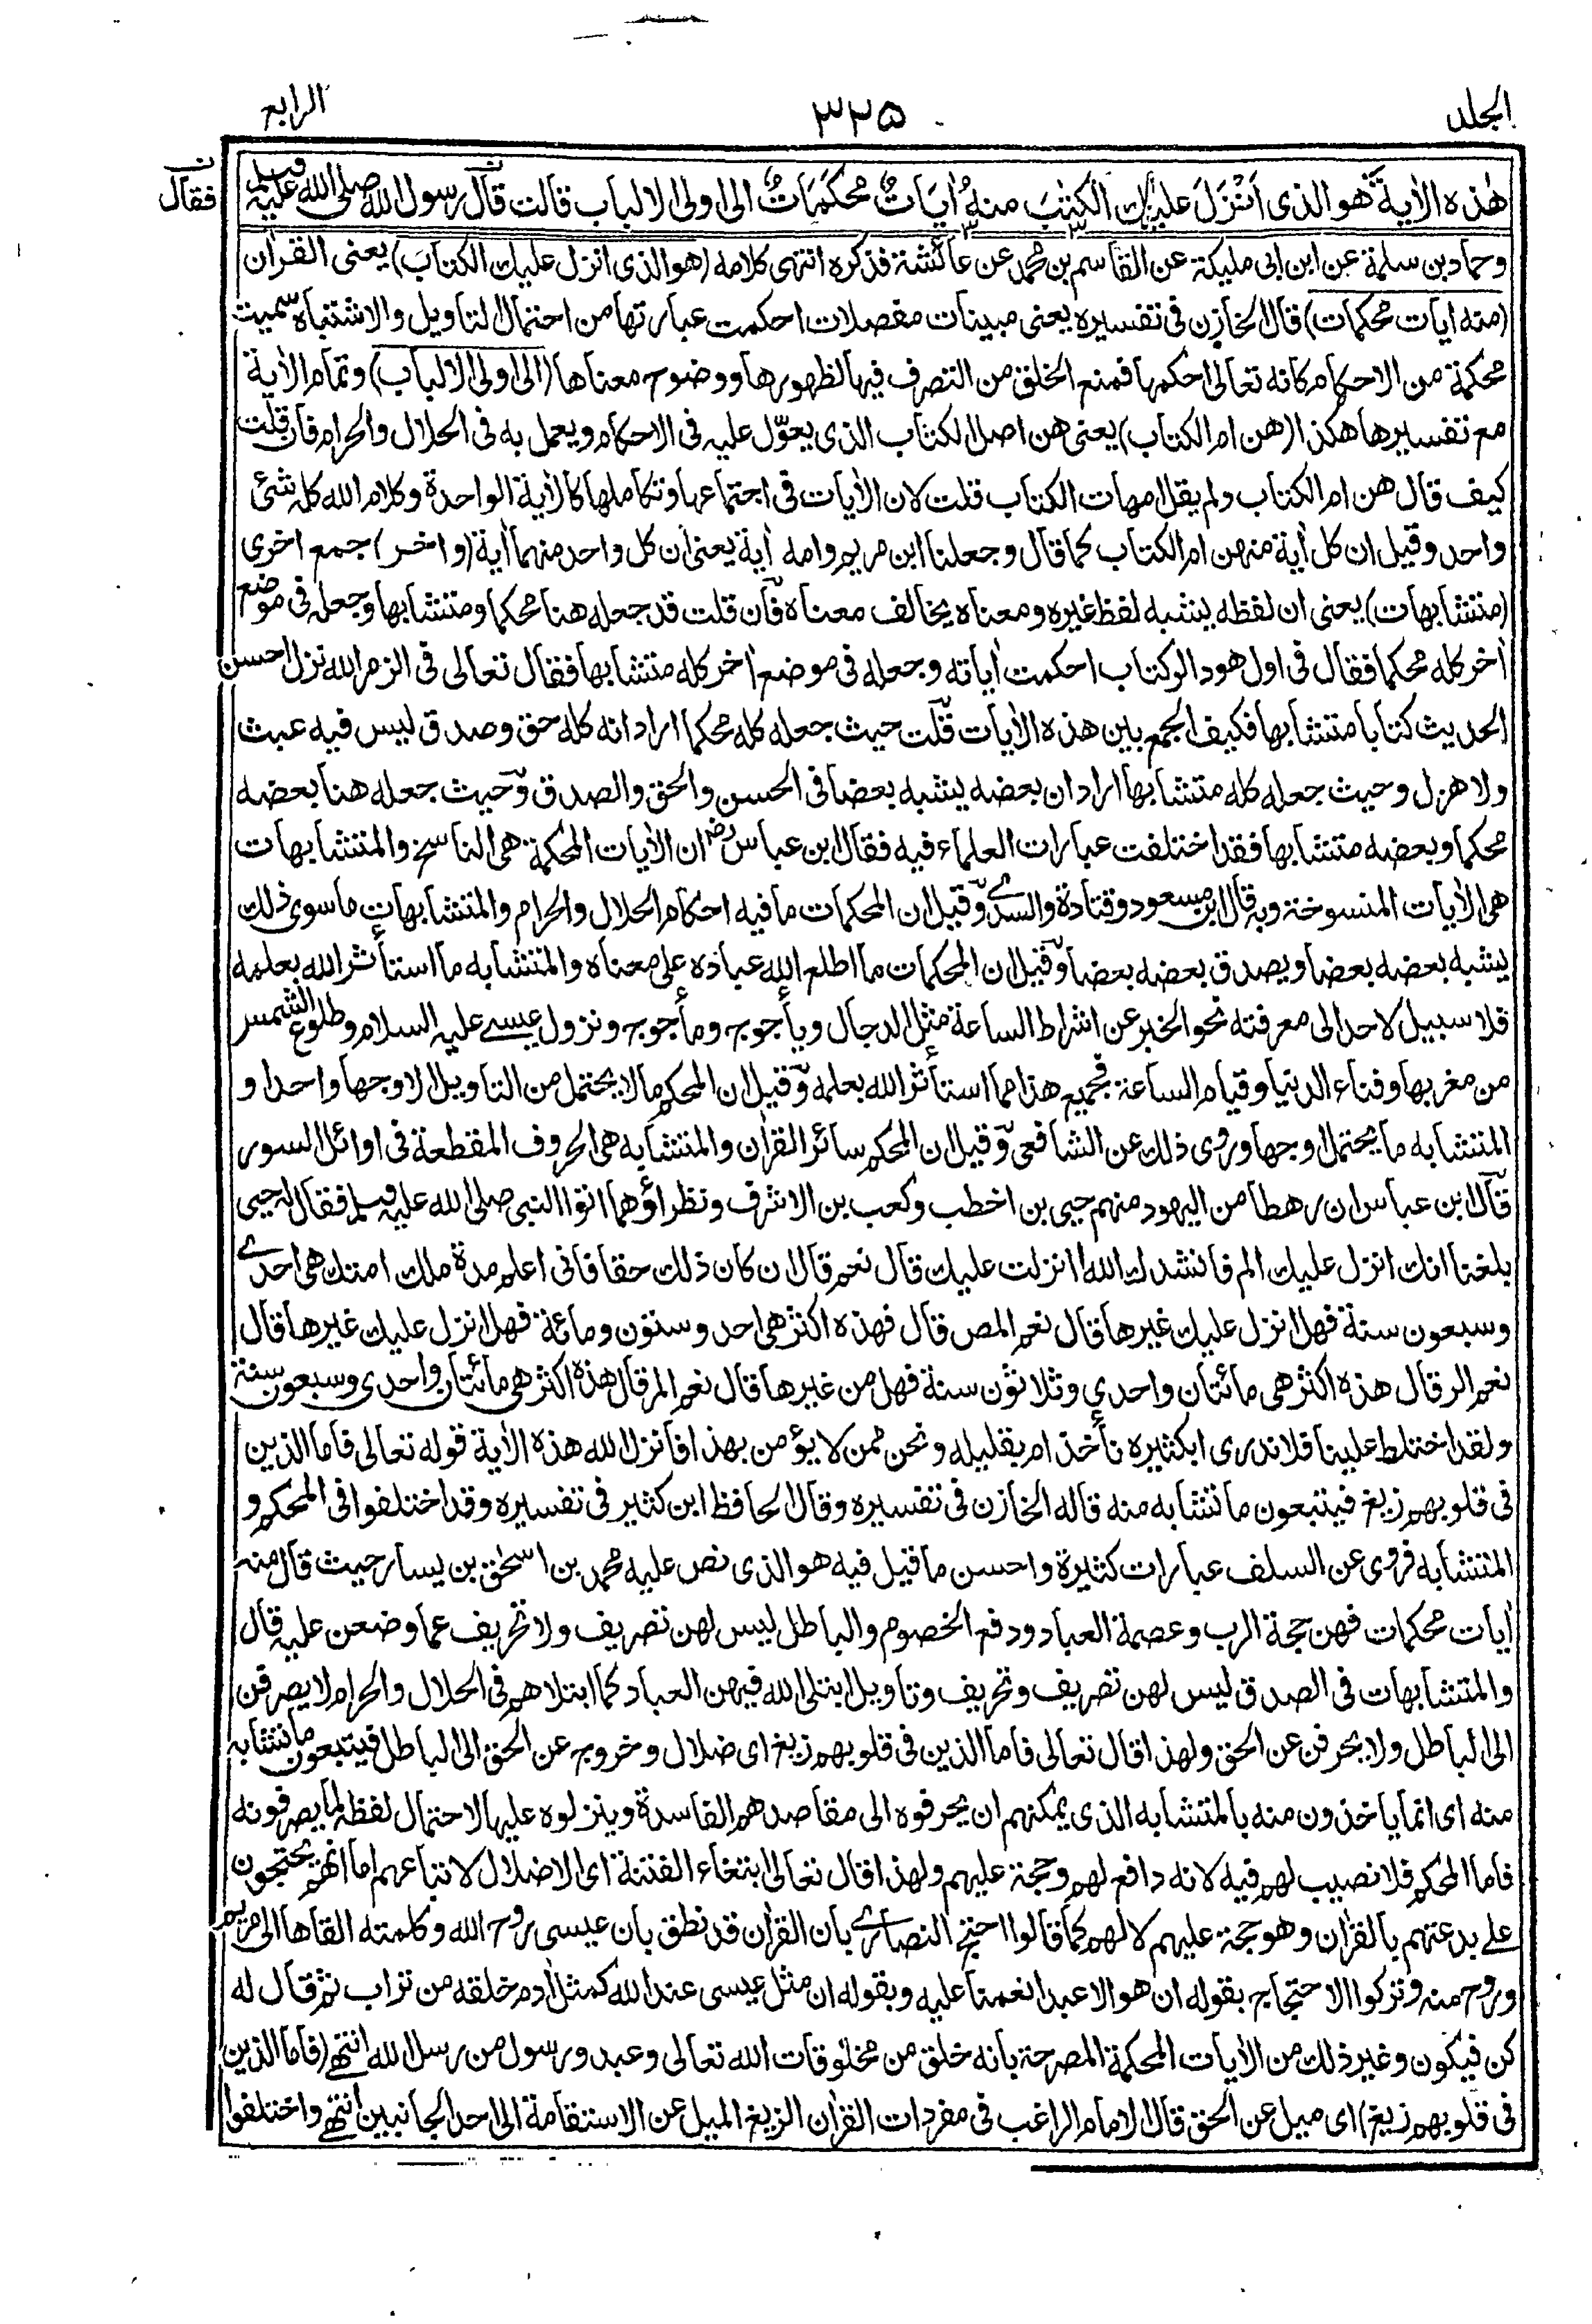 الجلد ٣٢٥ الرابع
هٰذه الاٰية هو الذى اَنْزَلَ عليك الكتٰب منه اٰيَاتٌ محكَمَاتٌ الى اولى الالباب قالت قال رسول الله صلى الله عليه وسلم
فقال
وحماد بن سلمة عن ابن ابى مليكة عن القاسم بن محمد عن عائشة فذكره انتهى كلامه (هو الذى انزل عليك الكتاب) يعنى القراٰن
(منه ايات محكمات) قال الخازن فى تفسيره يعنى مبينات مفصلات احكمت عبارتها من احتمال التاويل والاشتباه سميت
محكمة من الاحكام كانه تعالى احكمها فمنع الخلق من التصرف فيها لظهورها ووضوح معناها (الى اولى الالباب) وتمام الاٰية
مع تفسيرها هكذا (هن ام الكتاب) يعنى هن اصل الكتاب الذى يعوّل عليه فى الاحكام ويعمل به فى الحلال والحرام فان قلت
كيف قال هن ام الكتاب ولم يقل امهات الكتاب قلت لان الاٰيات فى اجتماعها وتكاملها كالاٰية الواحدة وكلام الله كله شئ
واحد وقيل ان كل اٰية منهن ام الكتاب كما قال وجعلنا ابن مريم وامه اٰية يعنى ان كل واحد منهما اٰية (واخر) جمع اخرى
(متشابهات) يعنى ان لفظه يشبه لفظ غيره ومعناه يخالف معناه فان قلت قد جعله هنا محكما ومتشابها وجعله فى موضع
اٰخر كله محكما فقال فى اول هود الر كتاب احكمت اٰياته وجعله فى موضع اٰخر كله متشابها فقال تعالى فى الزمر الله نزل احسن
الحديث كتابا متشابها فكيف الجمع بين هذه الاٰيات قلت حيث جعله كله محكما اراد انه كله حق وصدق ليس فيه عبث
ولا هزل وحيث جعله كله متشابها اراد ان بعضه يشبه بعضا فى الحسن والحق والصدق وحيث جعله هنا بعضه
محكما وبعضه متشابها فقد اختلفت عبارات العلماء فيه فقال ابن عباس رض ان الاٰيات المحكمة هى الناسخ والمتشابهات
هى الاٰيات المنسوخة وبه قال ابن مسعود وقتادة والسدے وقيل ان المحكمات ما فيه احكام الحلال والحرام والمتشابهات ما سوى ذلك
يشبه بعضه بعضا ويصدق بعضه بعضا وقيل ان المحكمات ما اطلع الله عباده على معناه والمتشابه ما استأثر الله بعلمه
فلا سبيل لاحد الى معرفته نحو الخبر عن اشراط الساعة مثل الدجال ويأجوج ومأجوج ونزول عيسے عليه السلام وطلوع الشمس
من مغربها وفناء الدنيا وقيام الساعة فجميع هذا مما استأثر الله بعلمه وقيل ان المحكم ما لا يحتمل من التاويل الا وجها واحدا و
المتشابه ما يحتمل اوجها وروى ذلك عن الشافعى وقيل ان المحكم سائر القراٰن والمتشابه هى الحروف المقطعة فى اوائل السور
قال ابن عباس ان رهطا من اليهود منهم حيى بن اخطب وكعب بن الاشرف ونظراؤهما اتوا النبى صلى الله عليه وسلم فقال له حيى
بلغنا انك انزل عليك الم فانشدك الله اانزلت عليك قال نعم قال ان كان ذلك حقا فانى اعلم مدة ملك امتك هى احدے
وسبعون سنة فهل انزل عليك غيرها قال نعم المص قال فهذه اكثر هى احد وستون ومائة فهل انزل عليك غيرها قال
نعم الر قال هذه اكثر هى مائتان واحدى وثلاثون سنة فهل من غيرها قال نعم المر قال هذه اكثر هى مائتان واحدى وسبعون سنة
ولقد اختلط علينا فلا ندرى ابكثيره نأخذ ام بقليله ونحن ممن لا يؤمن بهذا فانزل الله هذه الاٰية قوله تعالى فاما الذين
فى قلوبهم زيغ فيتبعون ما تشابه منه قاله الخازن فى تفسيره وقال الحافظ ابن كثير فى تفسيره وقد اختلفوا فى المحكم و
المتشابه فروى عن السلف عبارات كثيرة واحسن ما قيل فيه هو الذى نص عليه محمد بن اسحٰق بن يسار حيث قال منه
اٰيات محكمات فهن حجة الرب وعصمة العباد ودفع الخصوم والباطل ليس لهن تصريف ولا تحريف عما وضعن عليه قال
والمتشابهات فى الصدق ليس لهن تصريف وتحريف وتاويل ابتلى الله فيهن العباد كما ابتلاهم فى الحلال والحرام لا يصرفن
الى الباطل ولا يحرفن عن الحق ولهذا قال تعالى فاما الذين فى قلوبهم زيغ اى ضلال وخروج عن الحق الى الباطل فيتبعون ما تشابه
منه اى انما ياخذون منه بالمتشابه الذى يمكنهم ان يحرفوه الى مقاصدهم الفاسدة وينزلوه عليها لاحتمال لفظه لما يصرفونه
فاما المحكم فلا نصيب لهم فيه لانه دافع لهم وحجة عليهم ولهذا قال تعالى ابتغاء الفتنة اى الاضلال لاتباعهم اما انهم يحتجون
علے بدعتهم بالقراٰن وهو حجة عليهم لا لهم كما قالوا احتج النصارے بان القراٰن قد نطق بان عيسى روح الله وكلمته القاها الى مريم
وروح منه وتركوا الاحتجاج بقوله ان هو الا عبد انعمنا عليه وبقوله ان مثل عيسى عند الله كمثل اٰدم خلقه من تراب ثم قال له
كن فيكون وغير ذلك من الاٰيات المحكمة المصرحة بانه خلق من مخلوقات الله تعالى وعبد ورسول من رسل الله انتهے (فاما الذين
فى قلوبهم زيغ) اى ميل عن الحق قال الامام الراغب فى مفردات القراٰن الزيغ الميل عن الاستقامة الى احد الجانبين انتهے واختلفوا